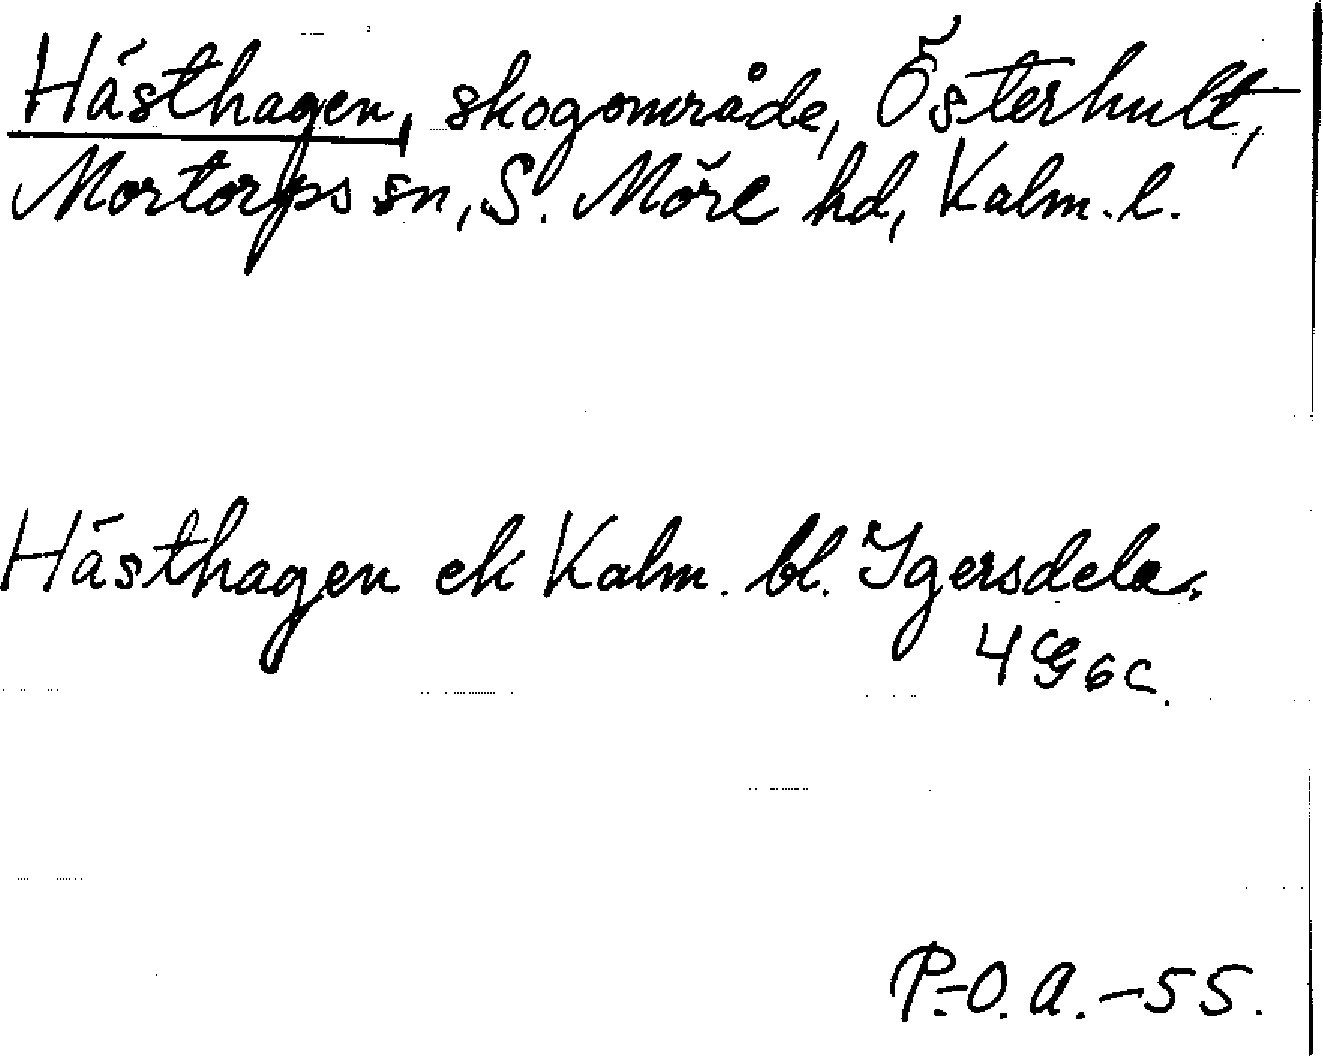 Hästhagen, skogområde, Österhult,
Mortorps sn, S. Möre hd, Kalm. l.
Hästhagen ek Kalm. bl. Igersdela.
4G6c.
P.-O. A. -55.